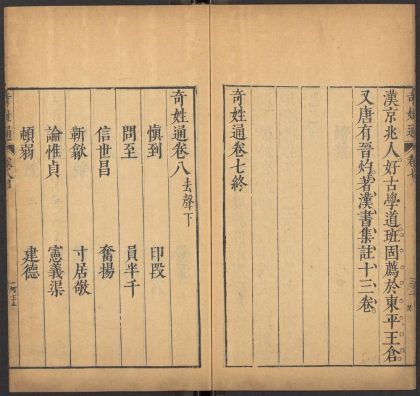 漢京兆人好古學道班固薦於東平王倉
又唐有晉灼著漢書集註十三卷
奇姓通卷七終
奇姓通卷八去聲下
慎到 印段
問至 員半千
信世昌 奮揚
靳歙 寸居敬
論惟貞 憲義渠
頓弱 建德